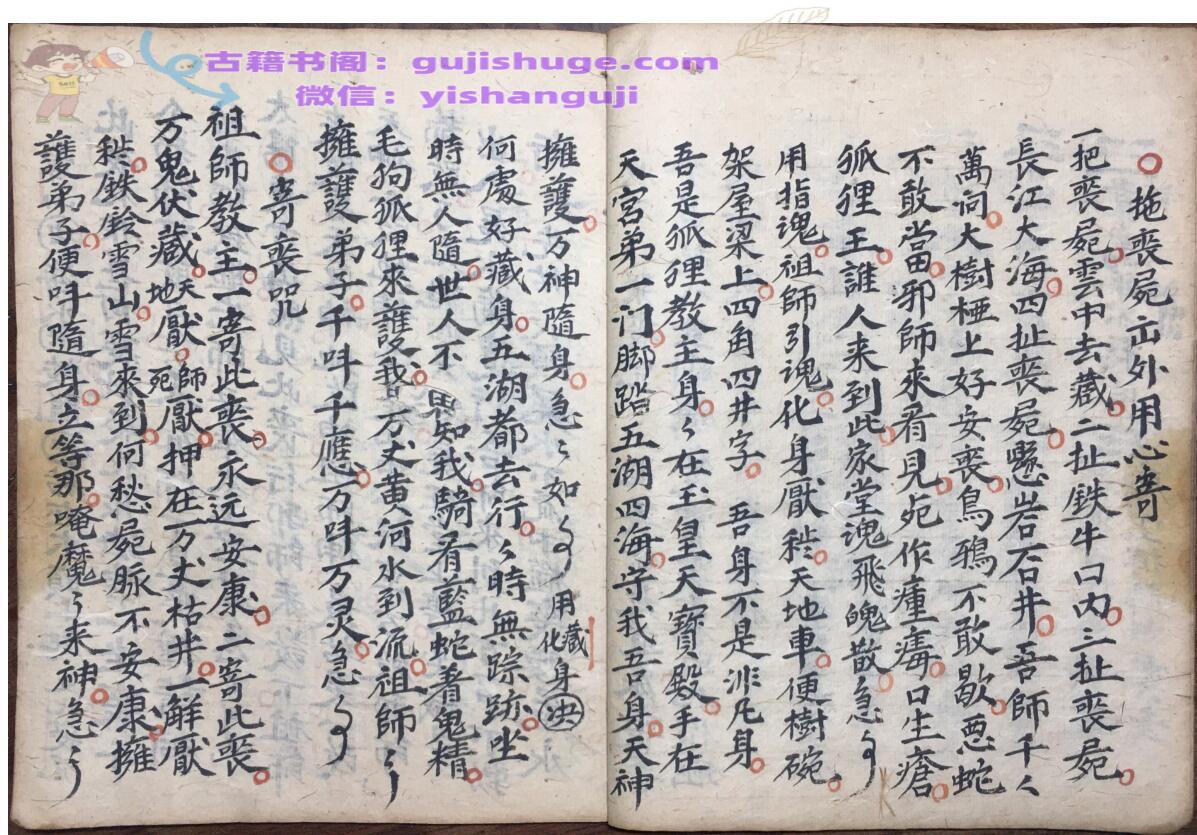 古籍书阁：gujishuge.com
微信：yishanguji
拖喪屍出外用心寄
一把喪屍雲中去藏二扯鉄牛口内三扯喪屍
長江大海四扯喪屍懸岩石井吾師千々
萬向大樹極上好安喪鳥鴉不敢歇惡蛇
不敢當邪師來看見宛作瘇毒口生瘡
狐狸王誰人来到此家堂魂飛魄散急
用指魂祖師引魂化身厭天地車便樹碗
架屋梁上四角四井字吾身不是非凡身
吾是狐狸教主身々在玉皇天寶殿手在
天宮弟一门脚踏五湖四海守我吾身天神
擁護万神隨身急々如 用藏化身決
何處好藏身五湖都去行々時無踪跡坐
時無人隨世人不思知我騎看藍蛇着鬼精
毛狗狐狸來護我万丈黄河水到流祖師
擁護弟子千吽千應万吽万灵急
寄喪咒
祖師教主一寄此喪永远安康二寄此喪
万鬼伏藏天地厭師死厭押在万丈枯井一解厭
鉄鈴雪山雪來到何愁屍脉不安康擁
護弟子便吽隨身立等那唵魔々来神急